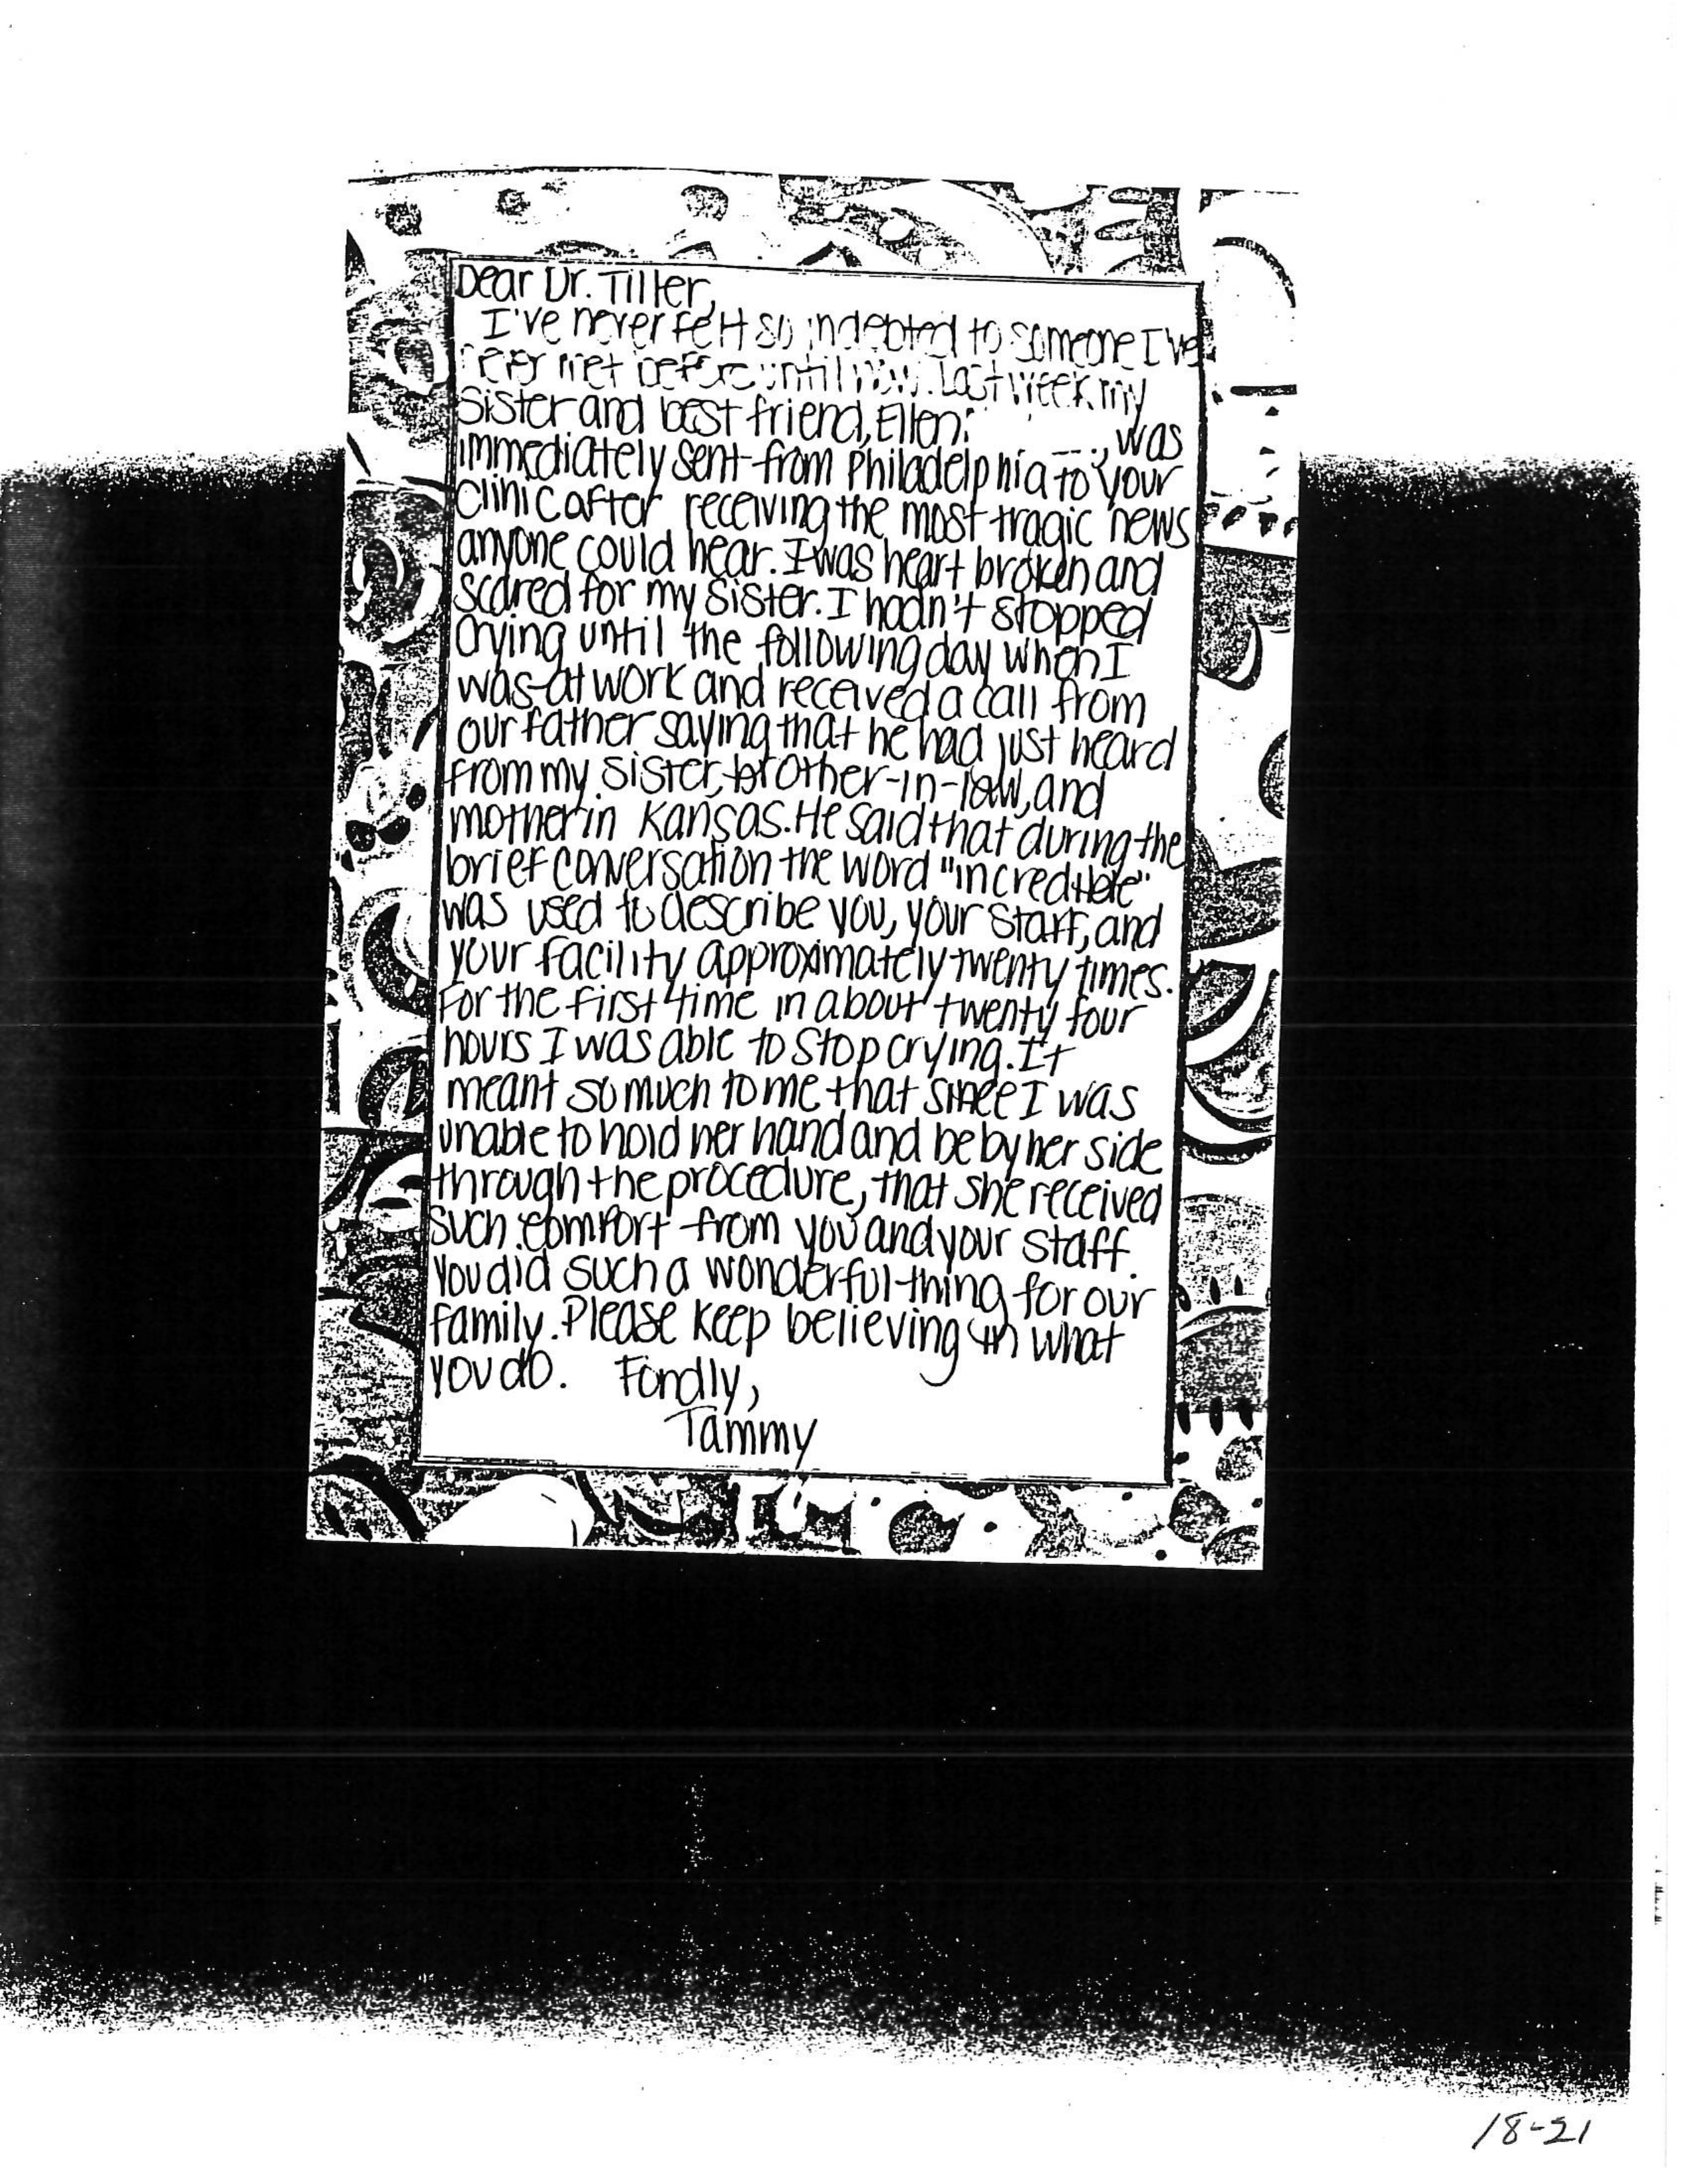 Dear Dr. Tiller,
I've never felt so indebted to someone I've
never met before until now. Last week my
sister and best friend, Ellen, was
immediately sent from Philadelphia to your
clinic after receiving the most tragic news
anyone could hear. I was heart broken and
scared for my sister. I hadn't stopped
crying until the following day when I
was at work and received a call from
our father saying that he had just heard
from my sister, brother-in-law, and
mother in Kansas. He said that during the
brief conversation the word "incredible"
was used to describe you, your staff, and
your facility approximately twenty times.
For the first time in about twenty four
hours I was able to stop crying. It
meant so much to me that since I was
unable to hold her hand and be by her side
through the procedure, that she received
such comfort from you and your staff.
You did such a wonderful thing for our
family. Please keep believing in what
you do. Fondly,
Tammy
18-21